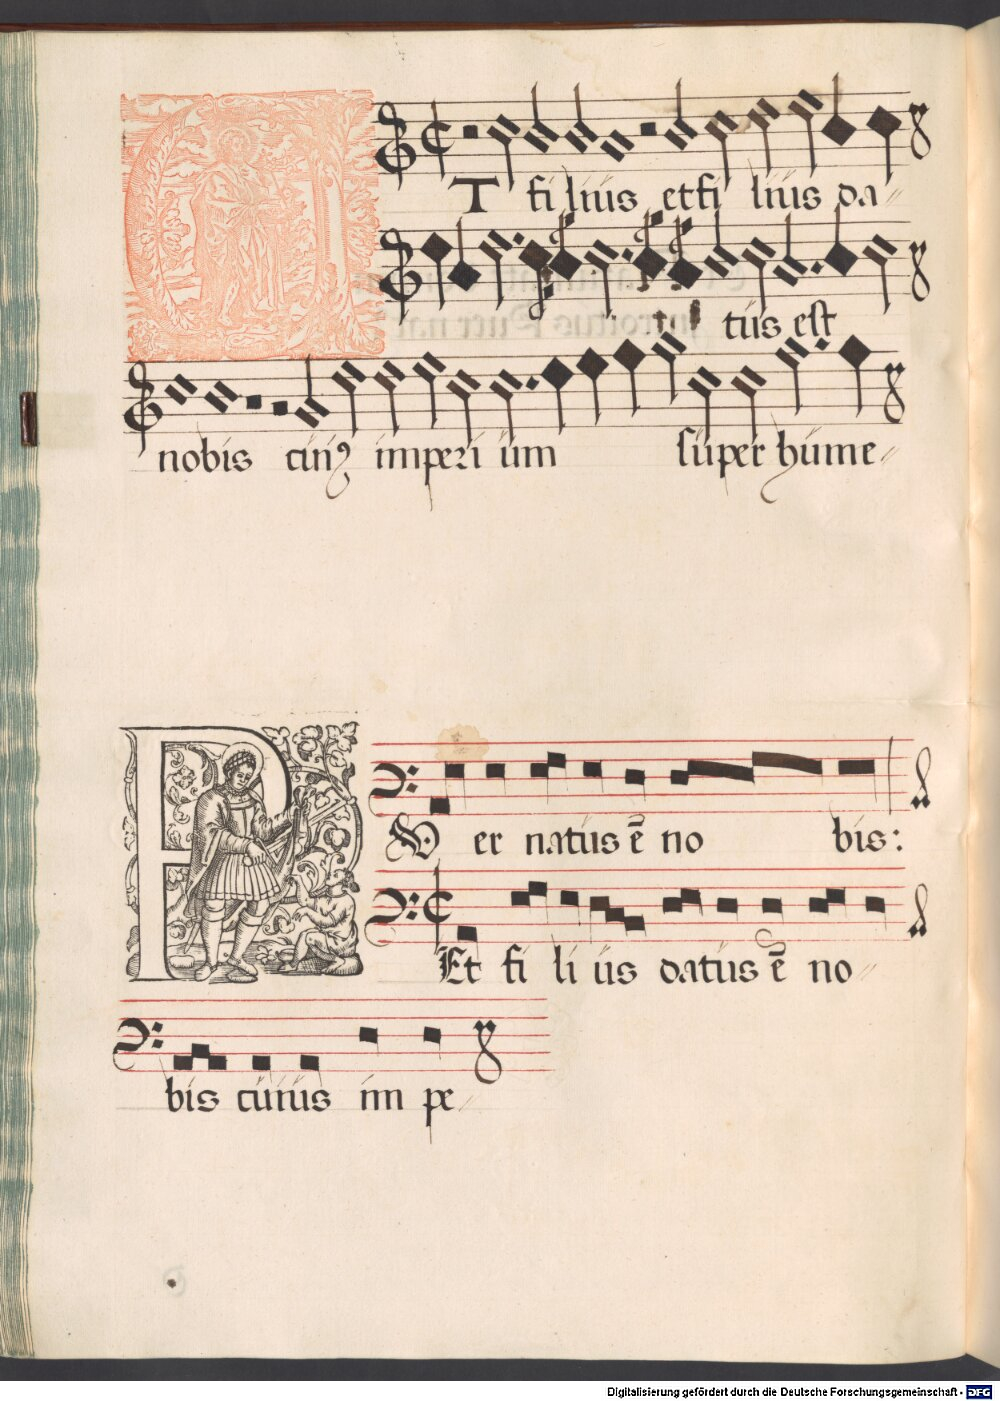 ET filius et fi lius da
tus est
nobis cuiꝰ imperi um super hume
PVer natus ē no bis:
Et fi li us datus ē no
bis cuius im pe
Digitalisierung gefördert durch die Deutsche Forschungsgemeinschaft - DFG